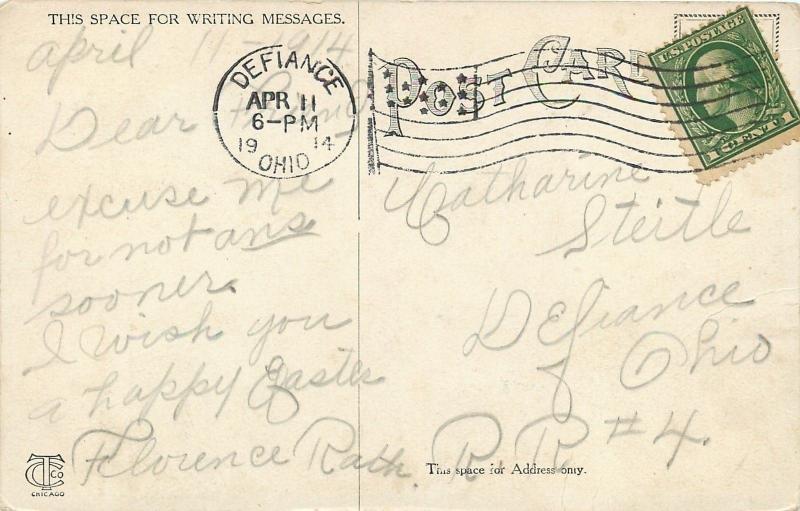 THIS SPACE FOR WRITING MESSAGES.
April 11-1914
Dear
excuse me
for not ans
sooner.
I wish you
a happy Easter
Florence Rath.
TCCo
CHICAGO
DEFIANCE
APR 11
6-PM
19 14
OHIO
POST CARD
U.S. POSTAGE
1 CENT 1
Catharine
Steitle
Defiance
Ohio
R. R. #4.
This space for Address only.